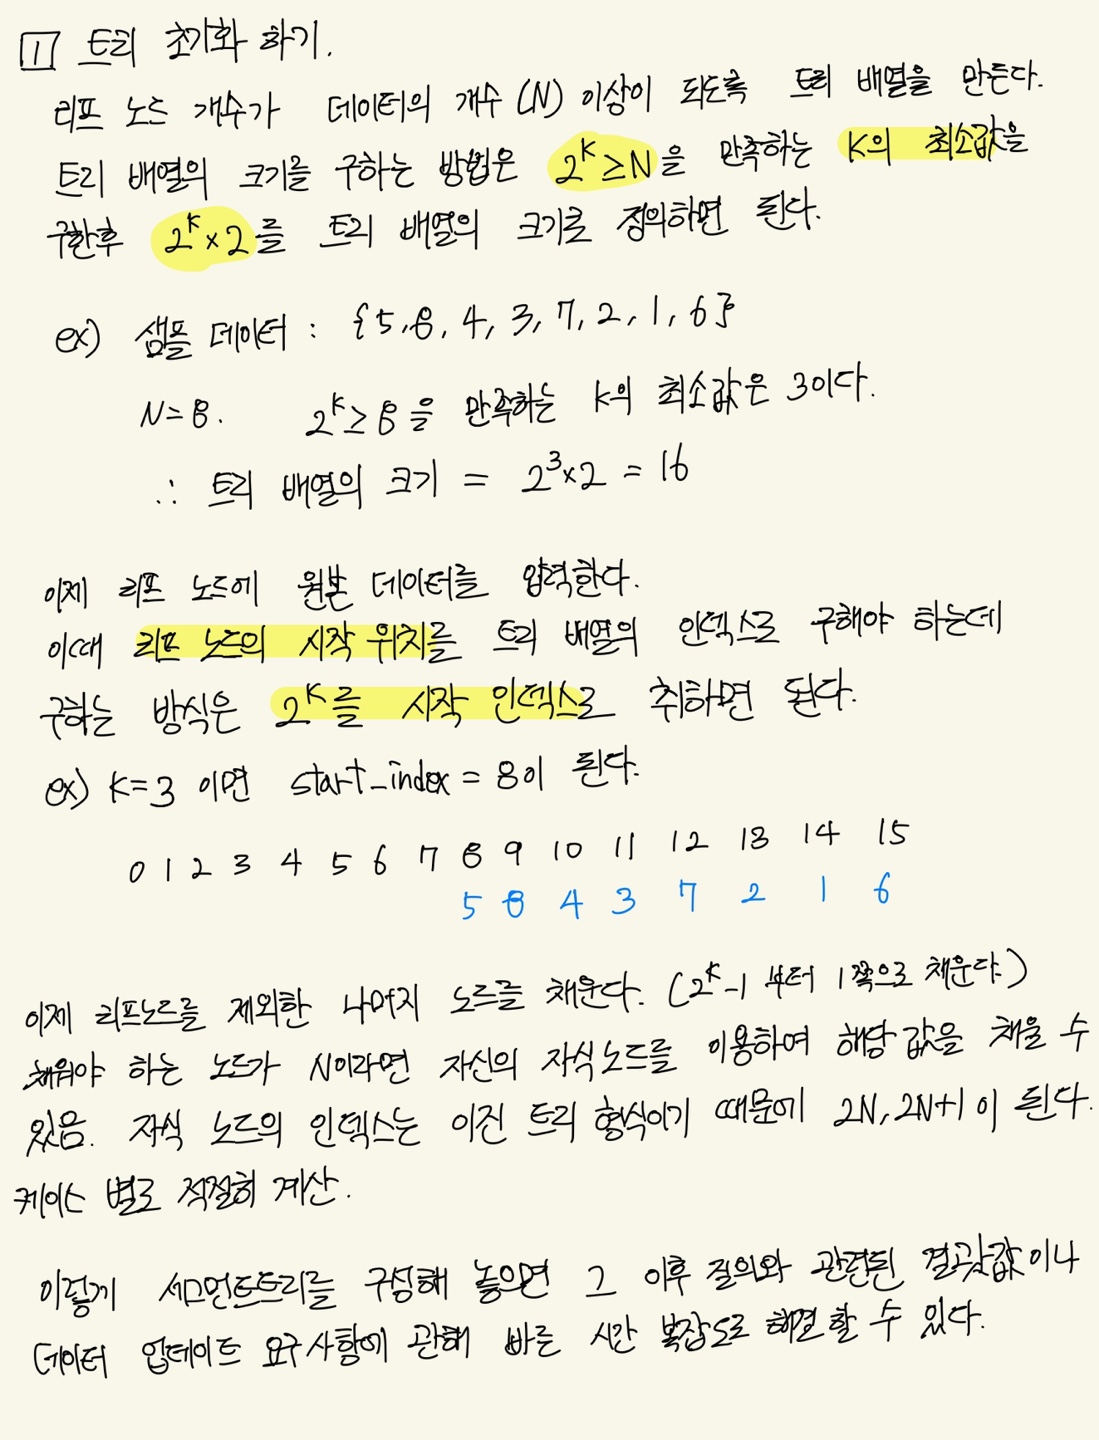 1 트리 초기화 하기.
리프 노드 개수가 데이터의 개수(N) 이상이 되도록 트리 배열을 만든다.
트리 배열의 크기를 구하는 방법은 2^k≥N을 만족하는 K의 최소값을
구한후 2^k×2를 트리 배열의 크기로 정의하면 된다.
ex) 샘플 데이터 : {5,8,4,3,7,2,1,6}
N=8. 2^k≥8을 만족하는 k의 최소값은 3이다.
∴ 트리 배열의 크기 = 2^3×2 = 16
이제 리프 노드에 원본 데이터를 입력한다.
이때 리프 노드의 시작 위치를 트리 배열의 인덱스로 구해야 하는데
구하는 방식은 2^k를 시작 인덱스로 취하면 된다.
ex) K=3 이면 start_index = 8이 된다.
0 1 2 3 4 5 6 7 8 9 10 11 12 13 14 15
5 8 4 3 7 2 1 6
이제 리프노드를 제외한 나머지 노드를 채운다. (2^k-1 부터 1쪽으로 채운다.)
채워야 하는 노드가 N이라면 자신의 자식노드를 이용하여 해당 값을 채울 수
있음. 자식 노드의 인덱스는 이진 트리 형식이기 때문에 2N, 2N+1이 된다.
케이스 별로 적절히 계산.
이렇게 세그먼트트리를 구성해 놓으면 그 이후 질의와 관련된 결괏값이나
데이터 업데이트 요구사항에 관해 빠른 시간 복잡도로 해결할 수 있다.